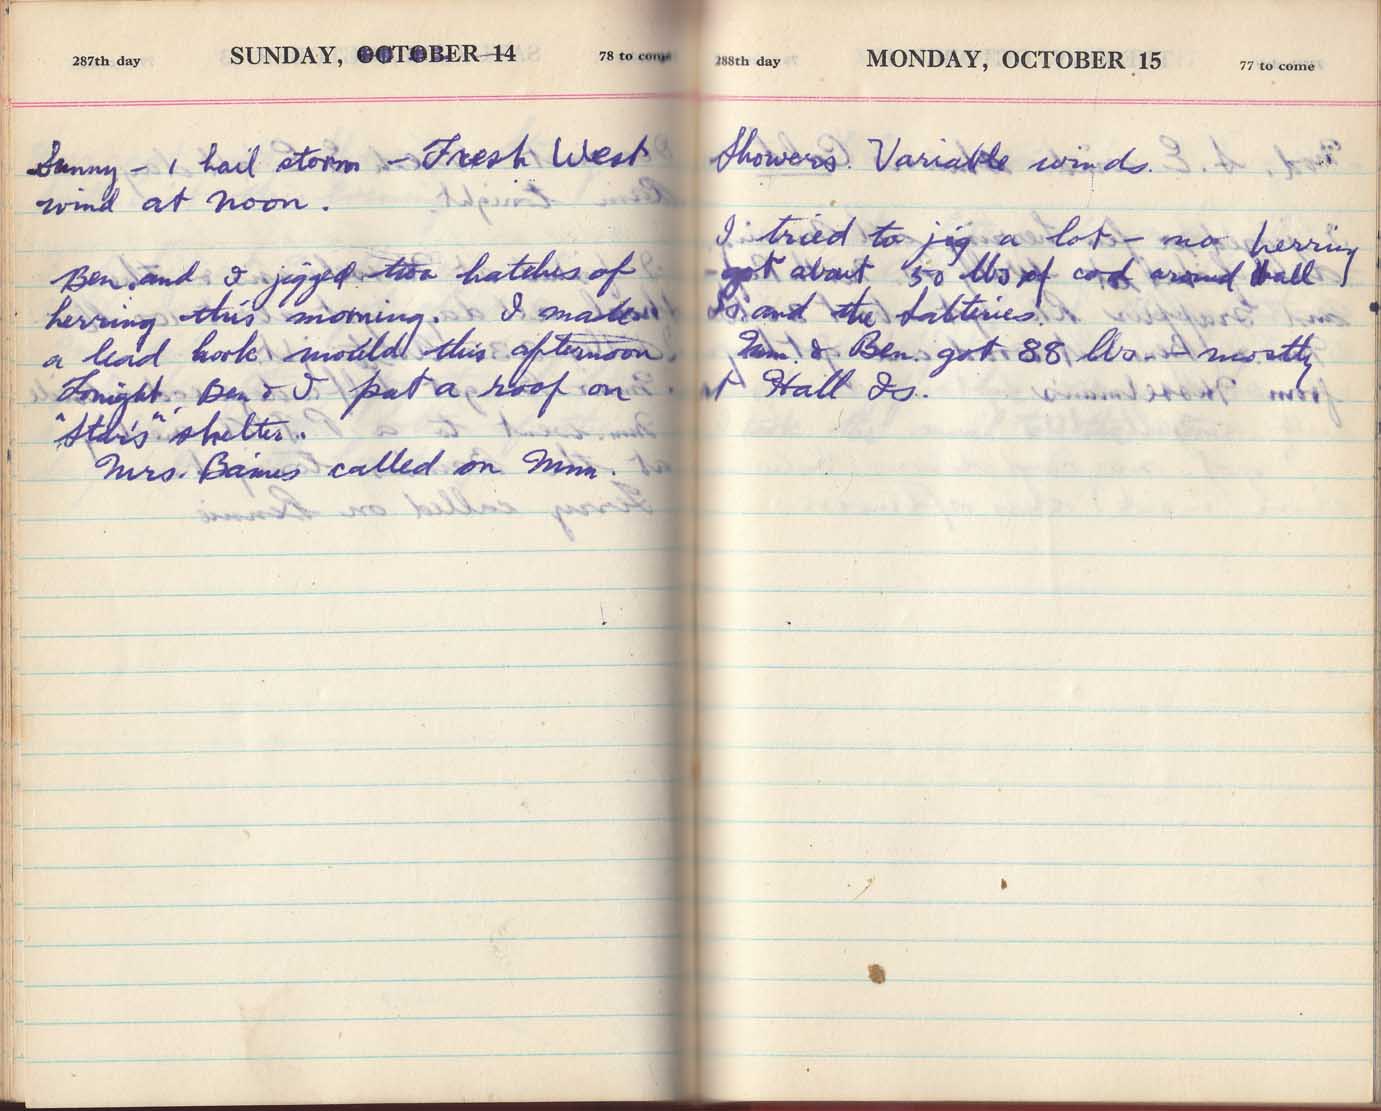 287th day SUNDAY, OCTOBER 14 78 to come
Sunny - 1 hail storm - Fresh West
wind at noon.
Ben and I jigged two hatches of
herring this morning. I made
a lead hook mould this afternoon.
Tonight, Ben & I put a roof on
"Star's" shelter.
Mrs. Baines called on Mum.
288th day MONDAY, OCTOBER 15 77 to come
Showers. Variable winds.
I tried to jig a lot - no herring
- got about 50 lbs of cod around Hall
Is and the
Mum & Ben got 88 lbs. - mostly
at Hall Is.